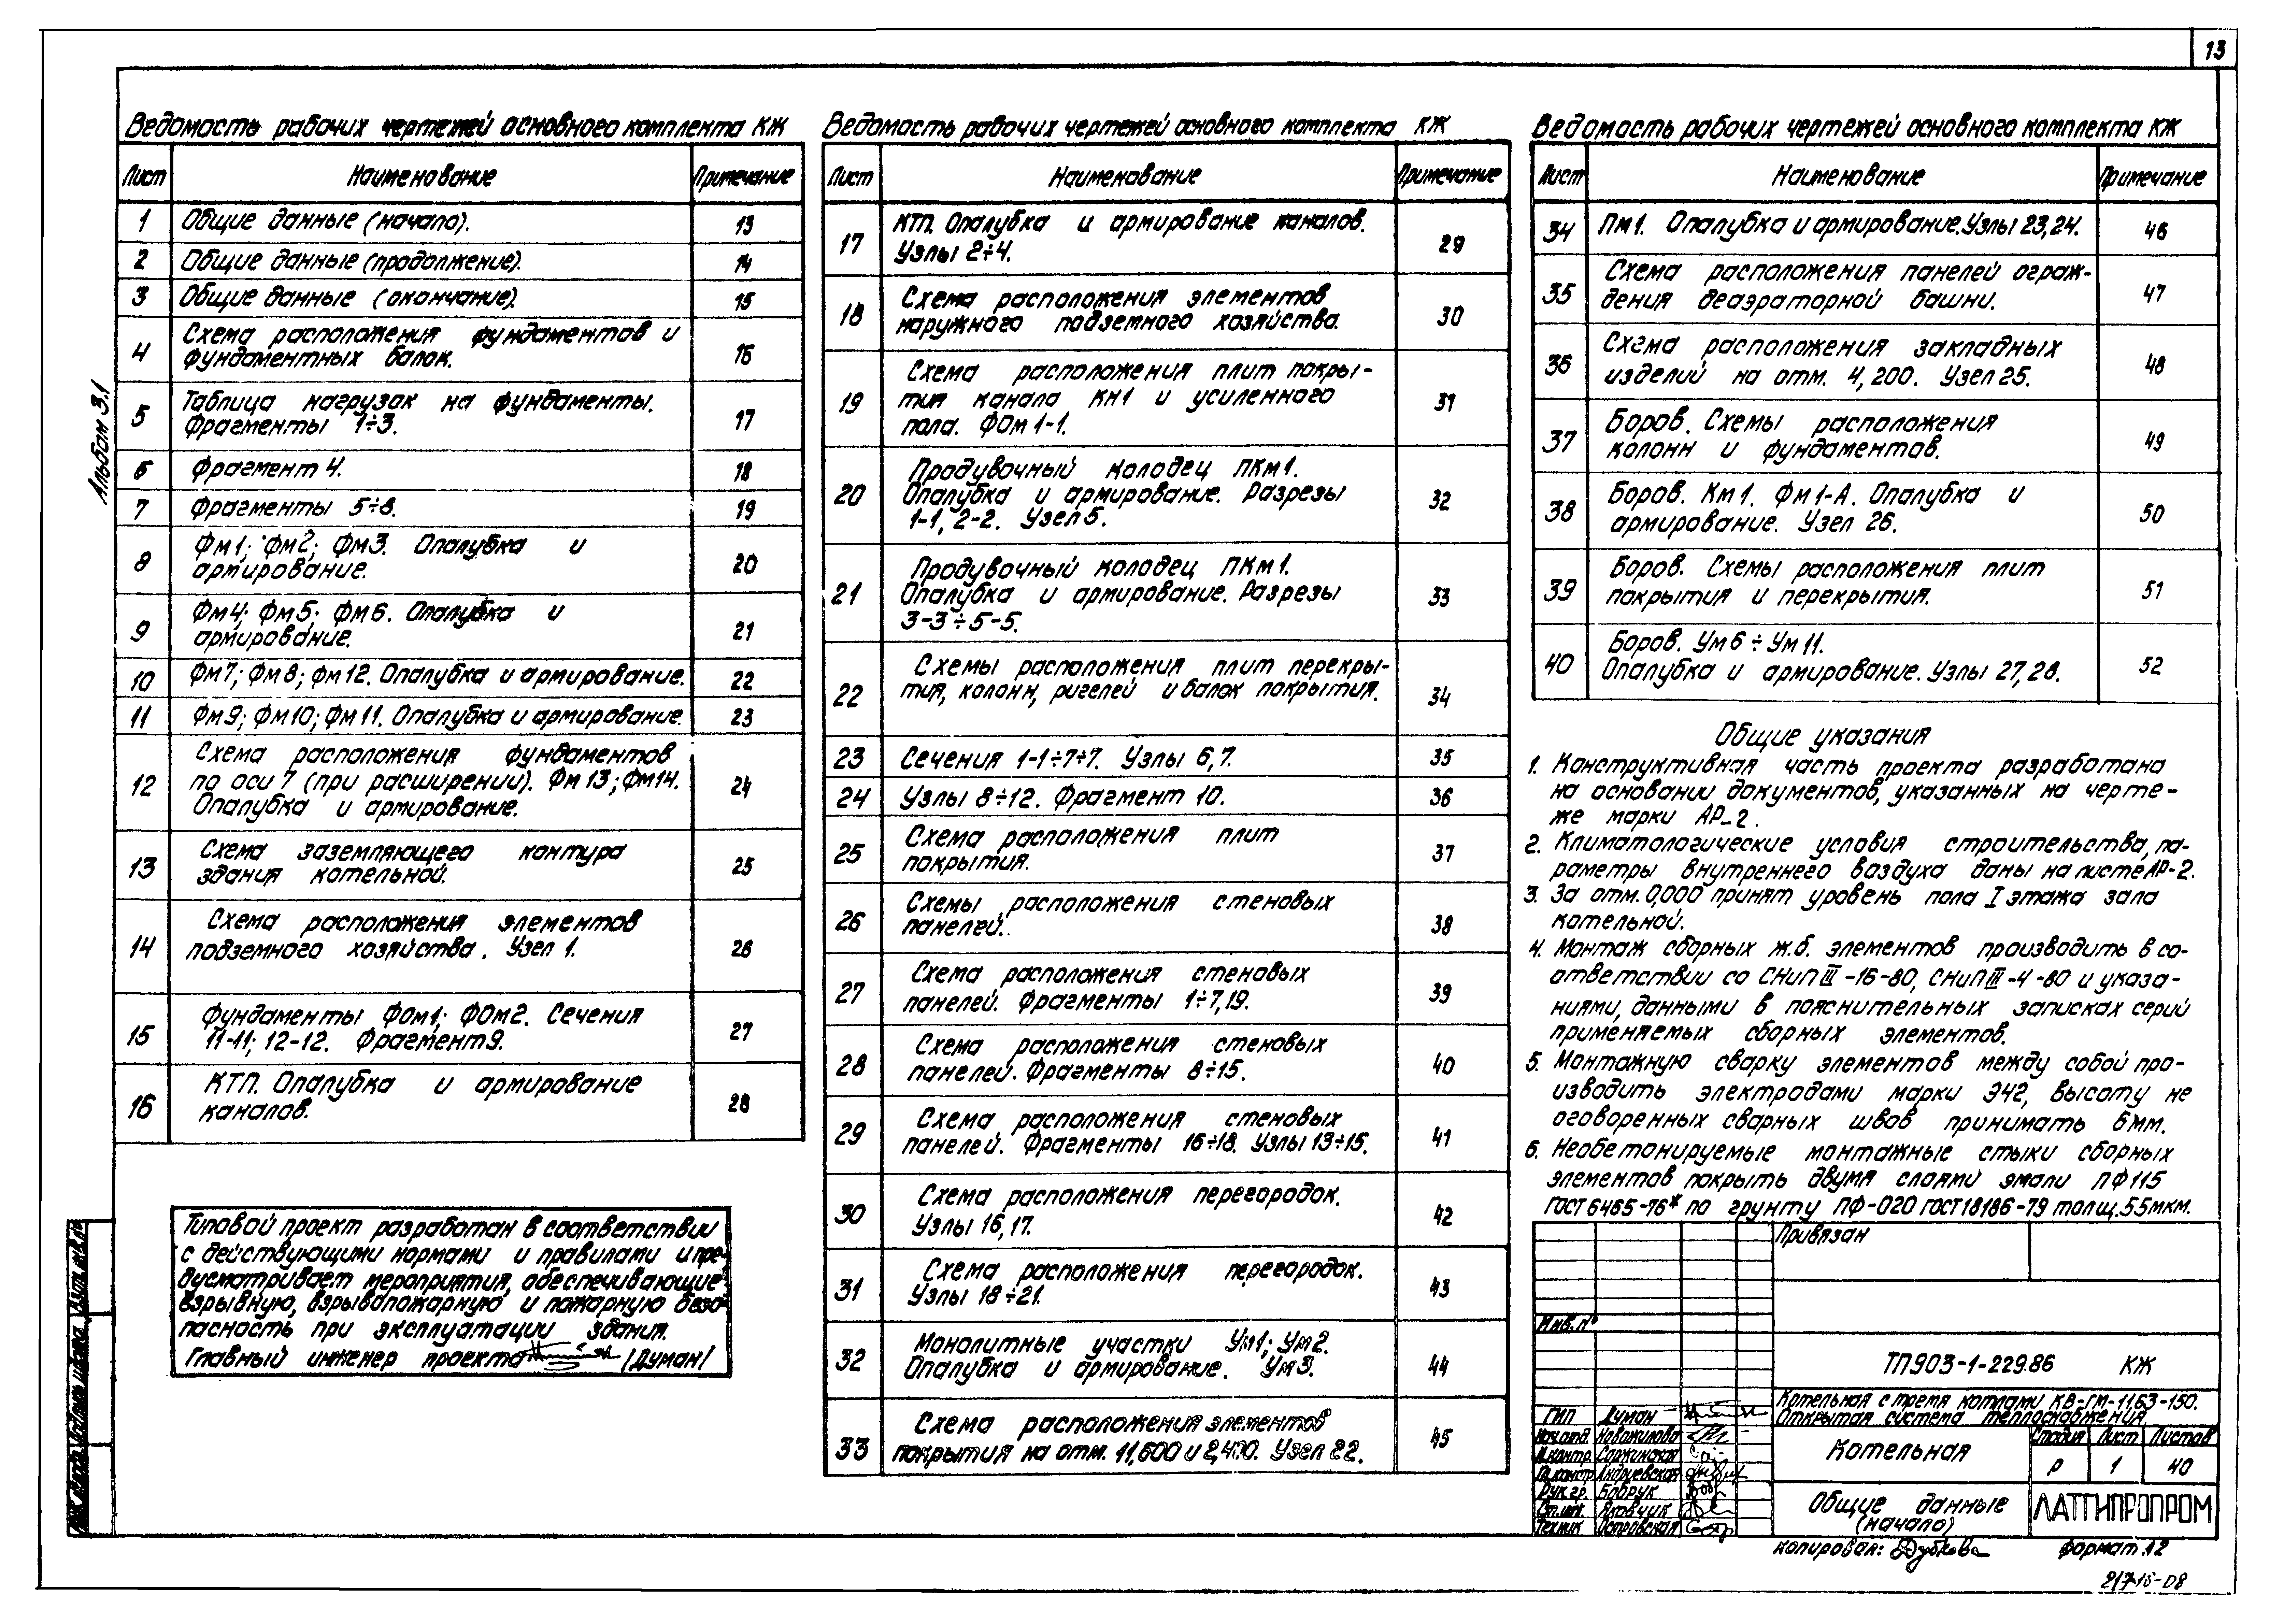 13
Альбом 3.1
Ведомость рабочих чертежей основного комплекта КЖ
Лист Наименование Примечание
1 Общие данные (начало). 13
2 Общие данные (продолжение). 14
3 Общие данные (окончание). 15
4 Схема расположения фундаментов и 16
фундаментных балок.
5 Таблица нагрузок на фундаменты. 17
Фрагменты 1÷3.
6 Фрагмент 4. 18
7 Фрагменты 5÷8. 19
8 Фм1; Фм2; Фм3. Опалубка и 20
армирование.
9 Фм4; Фм5; Фм6. Опалубка и 21
армирование.
10 Фм7; Фм8; Фм12. Опалубка и армирование. 22
11 Фм9; Фм10; Фм11. Опалубка и армирование. 23
12 Схема расположения фундаментов 24
по оси 7 (при расширении). Фм13; Фм14.
Опалубка и армирование.
13 Схема заземляющего контура 25
здания котельной.
14 Схема расположения элементов 26
подземного хозяйства. Узел 1.
15 Фундаменты ФОм1; ФОм2. Сечения 27
11-11; 12-12. Фрагмент 9.
16 КТП. Опалубка и армирование 28
каналов.
Типовой проект разработан в соответствии
с действующими нормами и правилами и пре-
дусматривает мероприятия, обеспечивающие
взрывную, взрывопожарную и пожарную безо-
пасность при эксплуатации здания.
Главный инженер проекта /Думан/
Ведомость рабочих чертежей основного комплекта КЖ
Лист Наименование Примечание
17 КТП. Опалубка и армирование каналов. 29
Узлы 2÷4.
18 Схема расположения элементов 30
наружного подземного хозяйства.
19 Схема расположения плит покры- 31
тия канала Кн1 и усиленного
пола. ФОм1-1.
20 Продувочный колодец ПКм1. 32
Опалубка и армирование. Разрезы
1-1, 2-2. Узел 5.
21 Продувочный колодец ПКм1. 33
Опалубка и армирование. Разрезы
3-3÷5-5.
22 Схемы расположения плит перекры- 34
тия, колонн, ригелей и балок покрытия.
23 Сечения 1-1÷7÷7. Узлы 6,7. 35
24 Узлы 8÷12. Фрагмент 10. 36
25 Схема расположения плит 37
покрытия.
26 Схемы расположения стеновых 38
панелей.
27 Схема расположения стеновых 39
панелей. Фрагменты 1÷7,19.
28 Схема расположения стеновых 40
панелей. Фрагменты 8÷15.
29 Схема расположения стеновых 41
панелей. Фрагменты 16÷18. Узлы 13÷15.
30 Схема расположения перегородок. 42
Узлы 16,17.
31 Схема расположения перегородок. 43
Узлы 18÷21.
32 Монолитные участки Ум1; Ум2. 44
Опалубка и армирование. Ум3.
33 Схема расположения элементов 45
покрытия на отм. 11,600 и 2,400. Узел 22.
Ведомость рабочих чертежей основного комплекта КЖ
Лист Наименование Примечание
34 Пм1. Опалубка и армирование. Узлы 23,24. 46
35 Схема расположения панелей ограж- 47
дения деаэраторной башни.
36 Схема расположения закладных 48
изделий на отм. 4,200. Узел 25.
37 Боров. Схемы расположения 49
колонн и фундаментов.
38 Боров. Км1. Фм1-А. Опалубка и 50
армирование. Узел 26.
39 Боров. Схемы расположения плит 51
покрытия и перекрытия.
40 Боров. Ум6÷Ум11. 52
Опалубка и армирование. Узлы 27,28.
Общие указания
1. Конструктивная часть проекта разработана
на основании документов, указанных на черте-
же марки АР-2.
2. Климатологические условия строительства, па-
раметры внутреннего воздуха даны на листе АР-2.
3. За отм. 0,000 принят уровень пола I этажа зала
котельной.
4. Монтаж сборных ж.б. элементов производить в со-
ответствии со СНиП III-16-80, СНиП III-4-80 и указа-
ниями, данными в пояснительных записках серий
применяемых сборных элементов.
5. Монтажную сварку элементов между собой про-
изводить электродами марки Э42, высоту не
оговоренных сварных швов принимать 6мм.
6. Необетонируемые монтажные стыки сборных
элементов покрыть двумя слоями эмали ПФ115
ГОСТ 6465-76* по грунту ПФ-020 ГОСТ 18186-79 толщ. 55мкм.
Привязан
Инв. №
ТП 903-1-229.86 КЖ
Котельная с тремя котлами КВ-ГМ-11,63-150.
Открытая система теплоснабжения.
ГИП Думан
Нач.отд. Новожилова
Н.контр. Соркинская
Гл.констр. Андриевская
Рук.гр. Бобрук
Ст.инж. Яковчик
Техник Островская
Котельная
Стадия Лист Листов
Р 1 40
Общие данные
(начало)
ЛАТГИПРОПРОМ
Копировал: Дубкова Формат 12